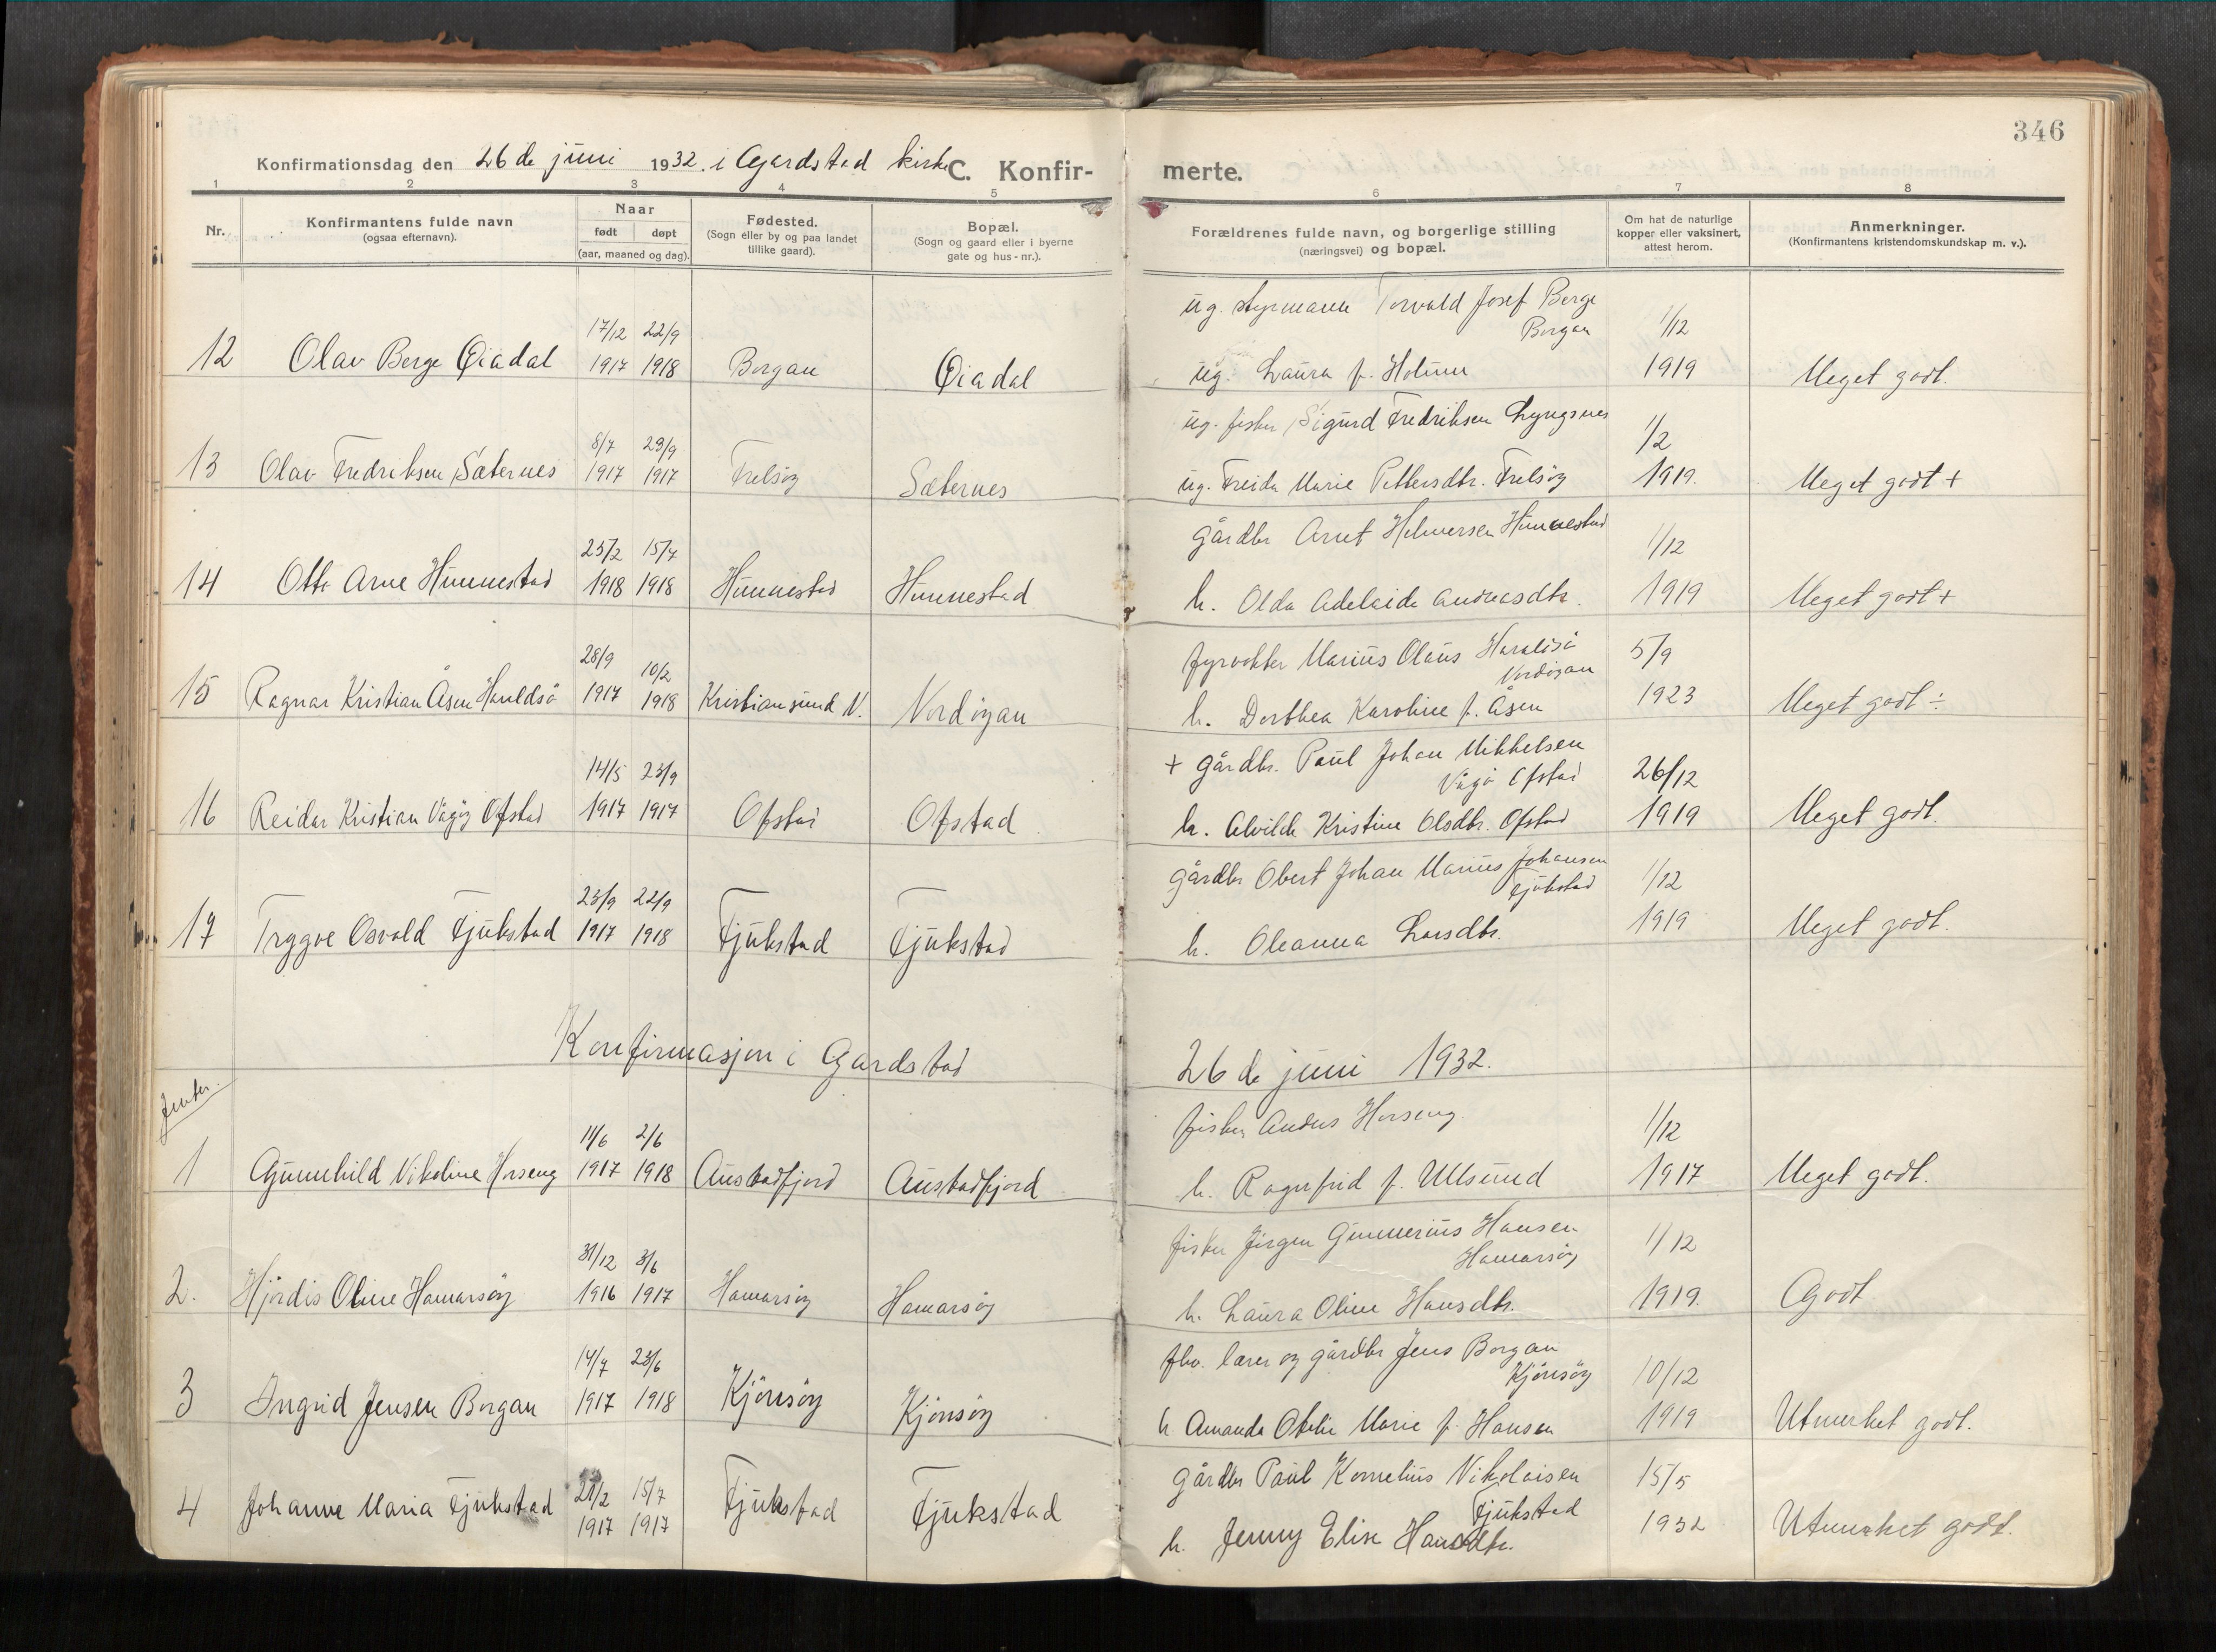 346
Konfirmationsdag den 26 de juni 1932. i Gardstad kirke C. Konfir- merte.
1 2 3 4 5 6 7 8
Nr.
Konfirmantens fulde navn
(ogsaa efternavn).
Naar
født døpt
(aar, maaned og dag).
Fødested.
(Sogn eller by og paa landet
tillike gaard).
Bopæl.
(Sogn og gaard eller i byerne
gate og hus-nr.).
Forældrenes fulde navn, og borgerlige stilling
(næringsvei) og bopæl.
Om hat de naturlige
kopper eller vaksinert,
attest herom.
Anmerkninger.
(Konfirmantens kristendomskundskap m. v.).
ug. styrmann Torvald Josef Berge
17/12 22/9 Borgan 1/12
12 Olav Berge Øiadal 1917 1918 Borgan Øiadal ug. Laura f. Holmen 1919 Meget godt.
ug. fisker Sigurd Fredriksen Lyngsnes
8/7 29/9 1/2
13 Olav Fredriksen Sæternes 1917 1917 Frelsøy Sæternes ug. Freida Marie Pettersdtr. Frelsøy 1919. Meget godt +
gårdbr Arnt Helmersen Hunnestad
25/2 15/7 1/12
14 Otto Arne Hunnestad 1918 1918 Hunnestad Hunnestad h. Olda Adelaide Andreasdtr. 1919 Meget godt +
fyrvokter Marius Olaus Haraldsö
28/9 10/2 Nordöyan 5/9
15 Ragnar Kristian Åsen Haraldsö 1917 1918 Kristiansund N. Nordöyan h. Dorthea Karoline f. Åsen 1923 Meget godt ÷
+ gårdbr. Paul Johan Mikkelsen
14/5 23/9 Vågö Ofstad 26/12
16 Reidar Kristian Vågöy Ofstad 1917 1917 Ofstad Ofstad h. Alvilde Kristine Olsdtr. Ofstad 1919 Meget godt.
gårdbr Obert Johan Marius Johansen
23/9 22/9 Fjukstad 1/12
17 Trygve Osvald Fjukstad 1917 1918 Fjukstad Fjukstad h. Oleanna Larsdtr. 1919 Meget godt.
Konfirmasjon i Gardstad 26 de juni 1932.
Jenter.
fisker Anders Horseng
11/6 2/6 1/12
1 Gunnhild Nikoline Horseng 1917 1918 Austadfjord Austadfjord h. Ragnfrid f. Ulsund 1917 Meget godt.
fisker Jörgen Gunnerius Hansen
31/12 3/6 Hamarsöy 1/12
2. Hjördis Oline Hamarsöy 1916 1917 Hamarsöy Hamarsöy h. Laura Oline Hansdtr. 1919. Godt
fhv. lærer og gårdbr Jens Borgan
14/7 23/6 Kjönsöy 10/12
3 Ingrid Jensen Borgan 1917 1918 Kjönsöy Kjönsöy h Amanda Otelie Marie f. Hansen 1919 Utmerket godt.
gårdbr Paul Kornelius Nikolaisen
15/7 Fjukstad 15/5
4 Johanne Maria Fjukstad 1917 1917 Fjukstad Fjukstad h. Jenny Elise Hansdtr. 1932 Utmerket godt.